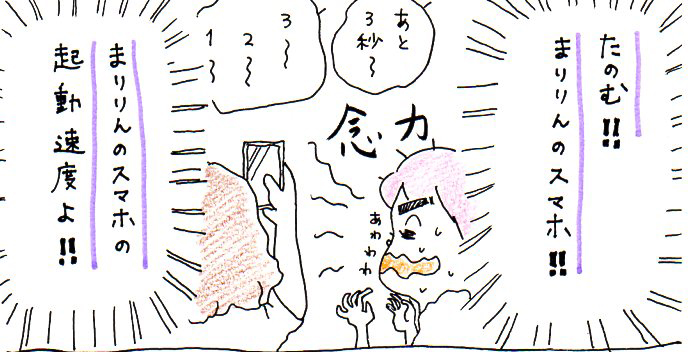 たのむ!!
まりりんのスマホ!!
あと
3秒〜
3〜
2〜
1〜
念力
あわわわ
まりりんのスマホの
起動速度よ!!